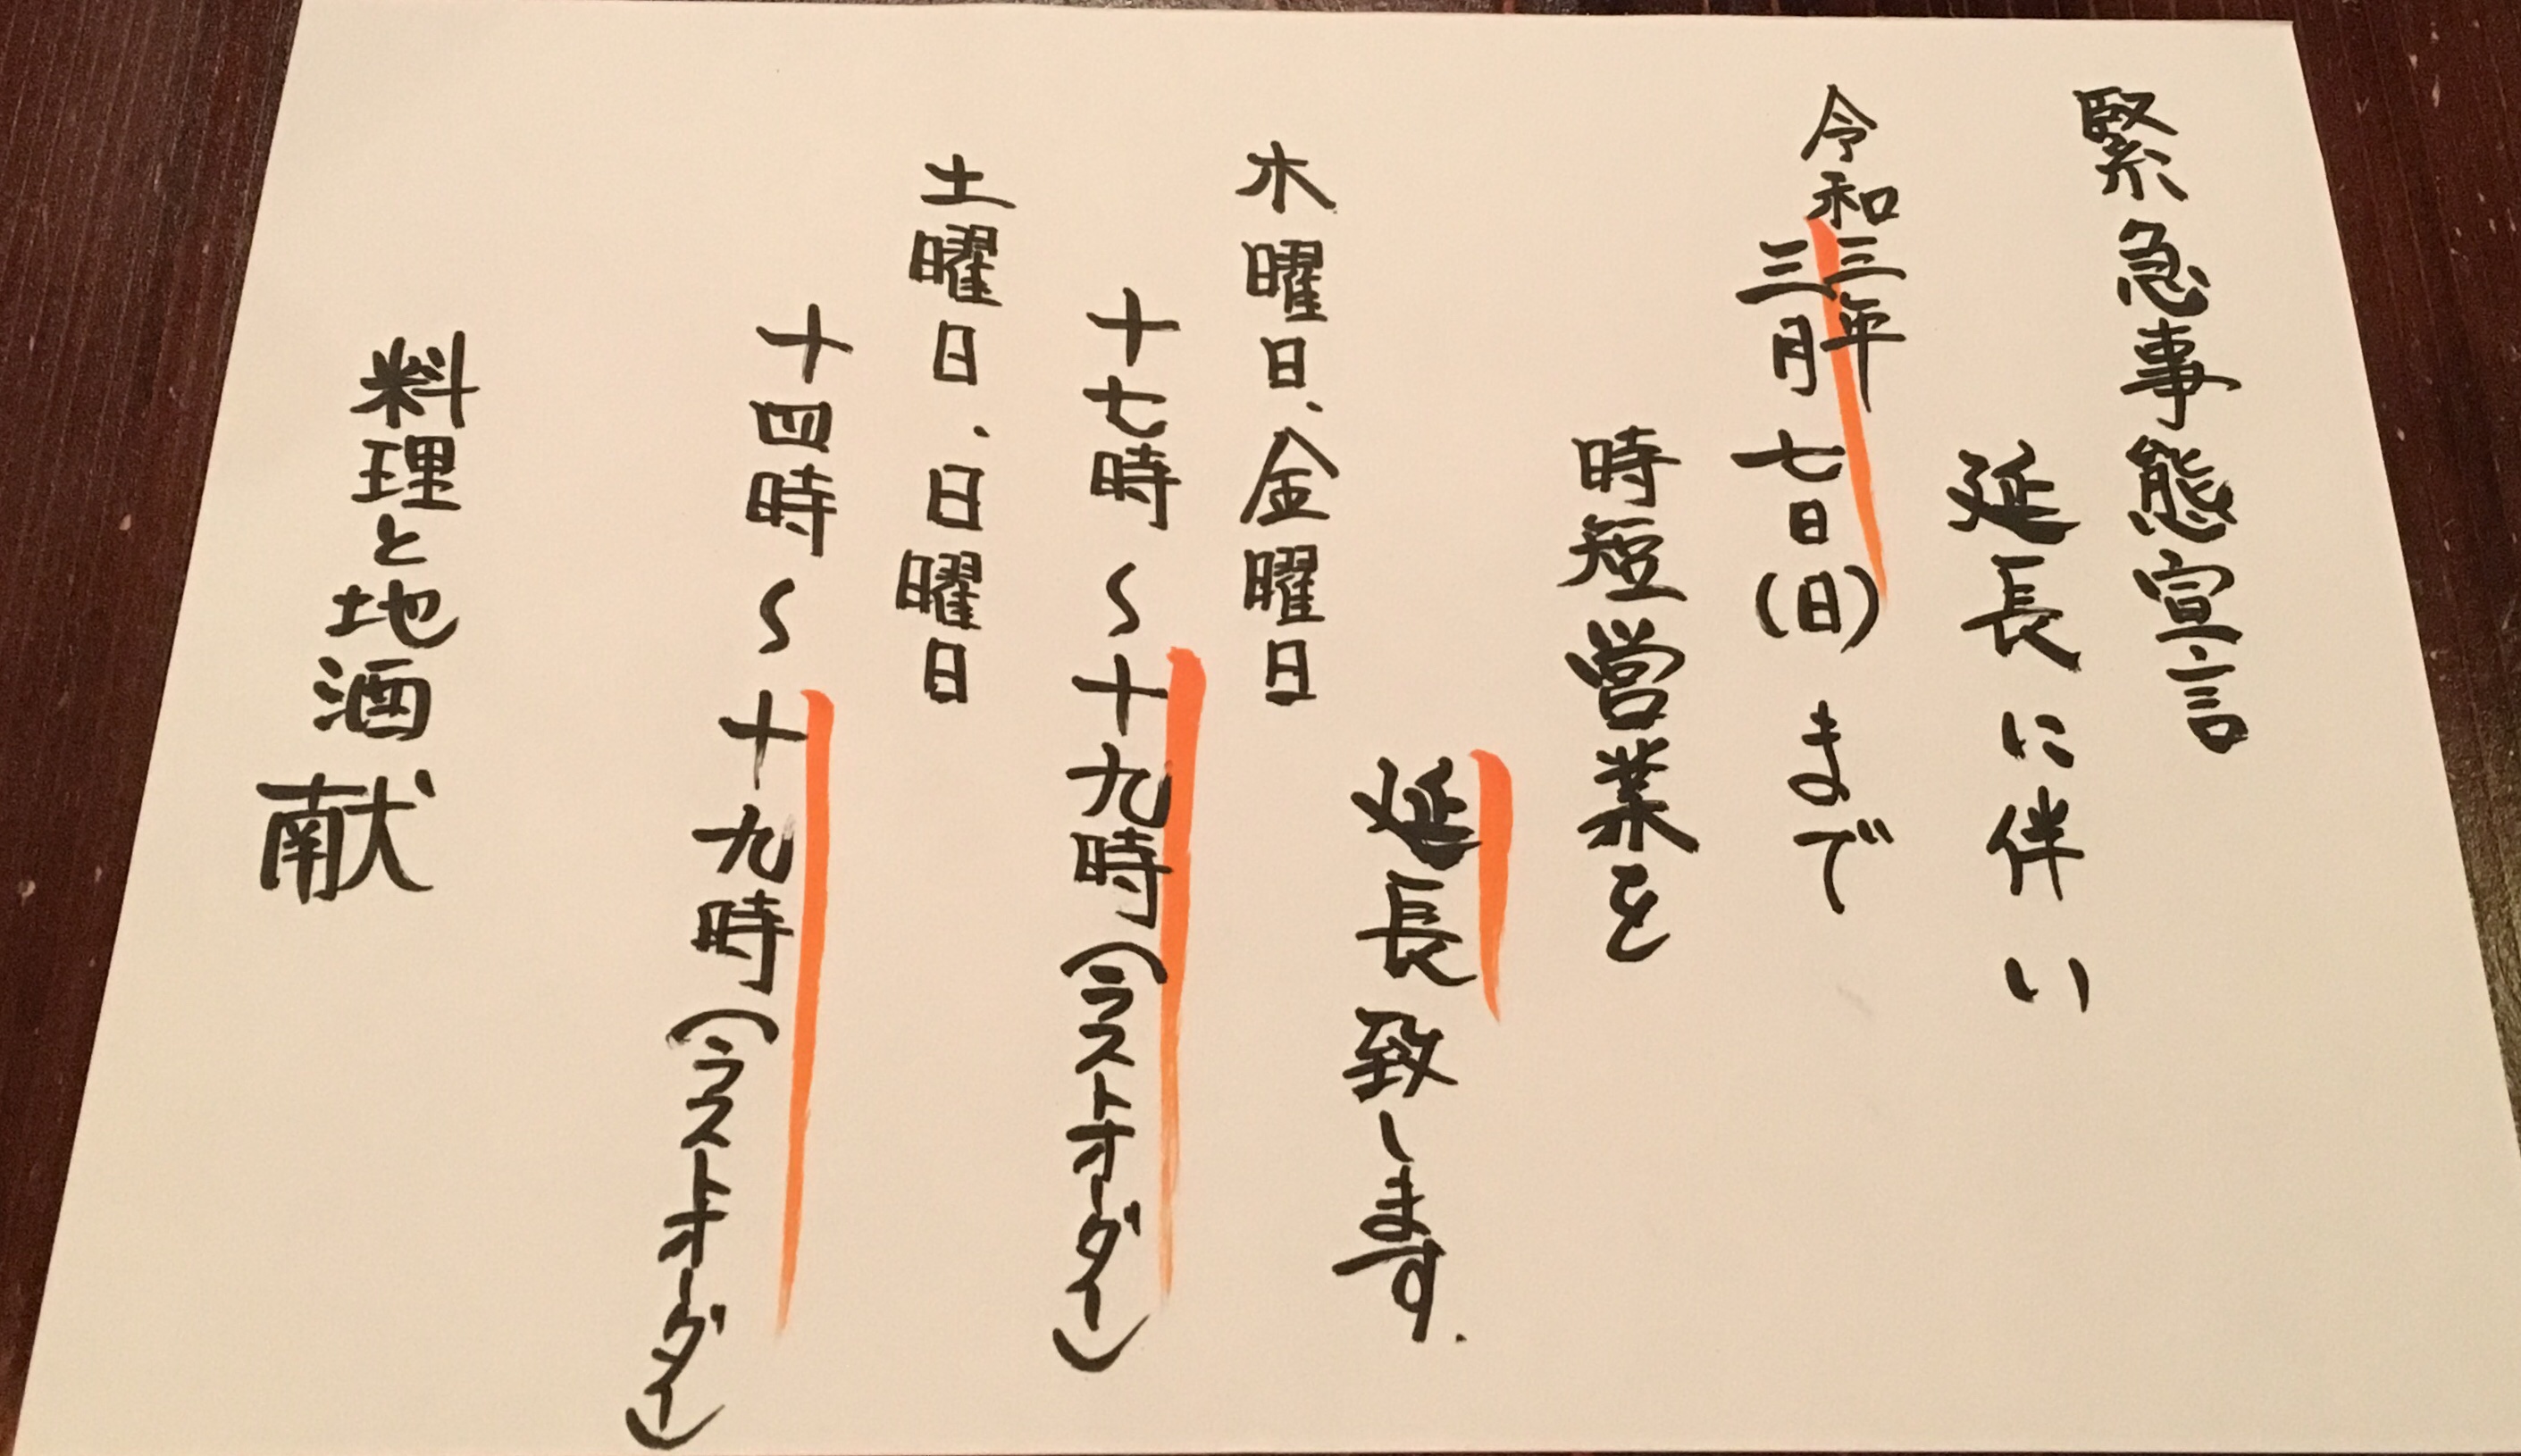 緊急事態宣言
延長に伴い
令和三年
三月七日(日)まで
時短営業を
延長致します.
木曜日、金曜日
十七時〜十九時(ラストオーダー)
土曜日、日曜日
十四時〜十九時(ラストオーダー)
料理と地酒 献